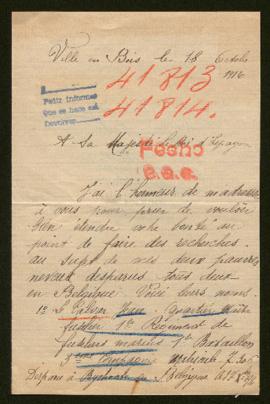 Ville en Bois le 18 Octobre
1916
41813
41814.
Petit informe
que se hace al
Devolver
A Sa Majesté le Roi d'Espagne
Fecho
J'ai l'honneur de m'adresser
à vous pour
bien étendre votre bonté au
point de faire des recherches
au sujet de mes deux pauvres
neveux disparus tous deux
en Belgique Voici leurs noms.
1º Le Jean Quartier Maître
fusilier 1er Régiment de
fusiliers marins 1er Bataillon
3eme Compagnie
Disparu à Belgique